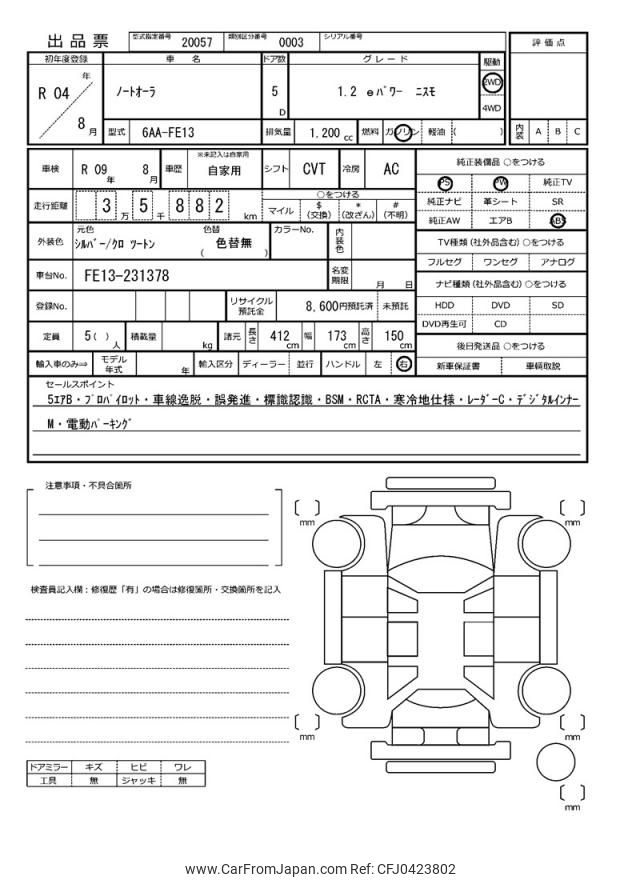 出品票 型式指定番号 20057 類別区分番号 0003 シリアル番号
評価点
初年度登録 車名 ドア数 グレード 駆動
R 04 年 ノートオーラ 5 D 1.2 eパワー ニスモ 2WD
4WD
8 月 型式 6AA-FE13 排気量 1,200 cc 燃料 ガソリン 軽油 ( ) 内装 A B C
車検 R 09 年 8 月 車歴 ※未記入は自家用 自家用 シフト CVT 冷房 AC 純正装備品 ○をつける
PS PW 純正TV
走行距離 3 万 5 千 8 8 2 km ○をつける 純正ナビ 革シート SR
マイル $ (交換) * (改ざん) # (不明) 純正AW エアB ABS
外装色 元色 シルバー/クロ ツートン 色替 ( 色替無 ) カラーNo. 内装色 TV種類 (社外品含む) ○をつける
フルセグ ワンセグ アナログ
車台No. FE13-231378 名変期限 月 日 ナビ種類 (社外品含む) ○をつける
登録No. リサイクル預託金 8,600円預託済 未預託 HDD DVD SD
DVD再生可 CD
定員 5 ( ) 人 積載量 kg 諸元 長さ 412 cm 幅 173 cm 高さ 150 cm 後日発送品 ○をつける
輸入車のみ⇒ モデル年式 年 輸入区分 ディーラー 並行 ハンドル 左 右 新車保証書 車輌取説
セールスポイント
5エアB・プロパイロット・車線逸脱・誤発進・標識認識・BSM・RCTA・寒冷地仕様・レーダーC・デジタルインナー
M・電動パーキング
注意事項・不具合箇所
mm mm
検査員記入欄：修復歴「有」の場合は修復箇所・交換箇所を記入
mm mm
ドアミラー キズ ヒビ ワレ
工具 無 ジャッキ 無
mm
www.CarFromJapan.com Ref: CFJ0423802